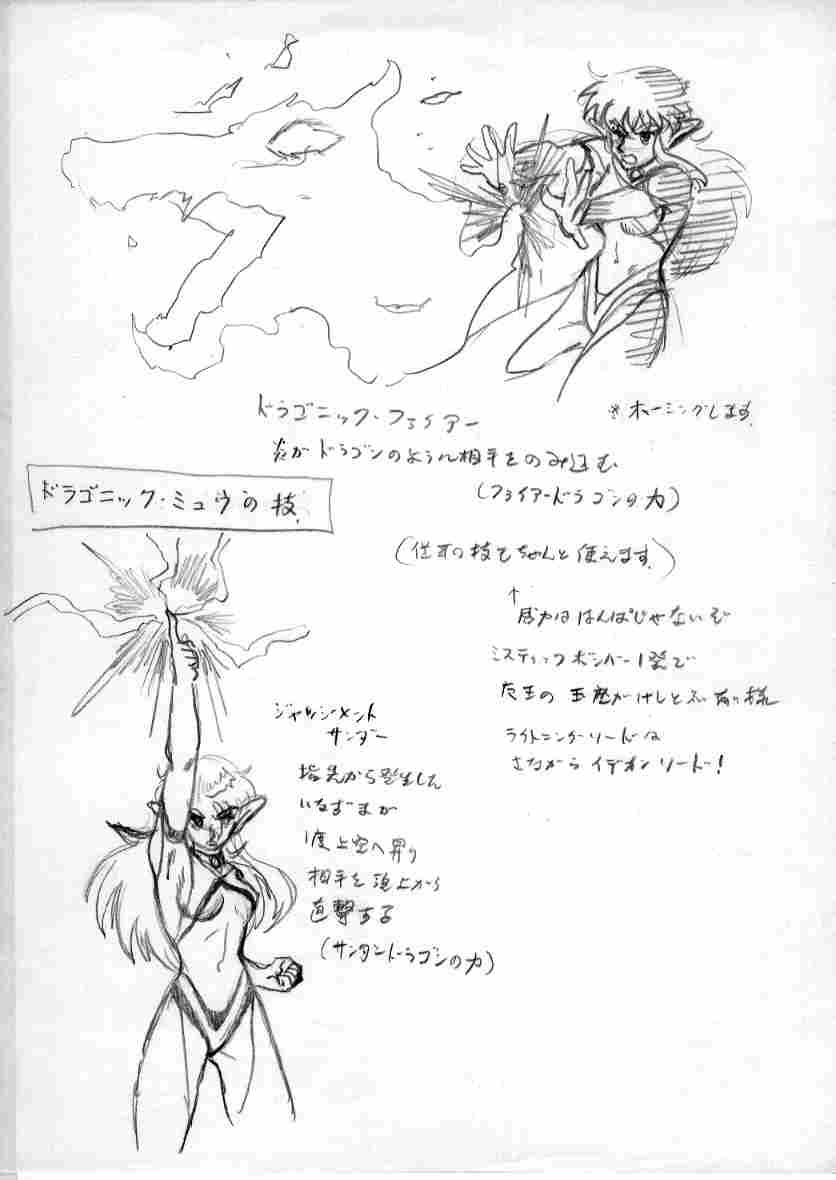 ドラゴニック・ファイアー
※ホーミングします。
炎がドラゴンのように相手をのみ込む
(ファイアードラゴンの力)
ドラゴニック・ミュウの技
(従来の技もちゃんと使えます。)
↑
威力ははんぱじゃないぞ
ミスティックボンバー1発で
の玉座がけしとぶ有り様
ライトニングソードは
さながらイデオンソード!
ジャッジメント
サンダー
指先から発生した
いなずまが
1度上空へ昇り
相手を頭上から
直撃する
(サンダードラゴンの力)